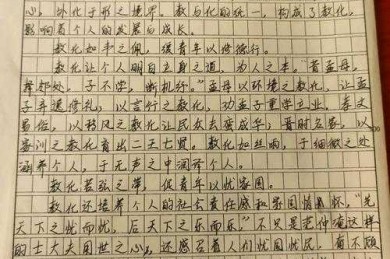 心，外化于形之境界。教与化的统一，构成了教化，
影响着个人的发展与成长。
教化如平之佩，缓青年以修德行。
教化让个人明白立身之道，为人之本。"昔孟母，
择邻处，子不学，断机杼。"孟母以环境之教化，让孟
子弃退修礼，以言行之教化，劝孟子重学立业。春文
易俗，以移风之教化让民众去蛮成华；晋时名家，以
家训之教化育出二王七贤。教化如丝响，于细微之处
涵养个人，于无声之中润泽个人。
教化若弦之弹，促青年以忧家国。
教化还培养个人的社会责任感和家国情怀，"先
天下之忧而忧，后天下之乐而乐"，不只是范仲淹这样
的士大夫用世之心，还感召着人们忧国忧民，有不顾